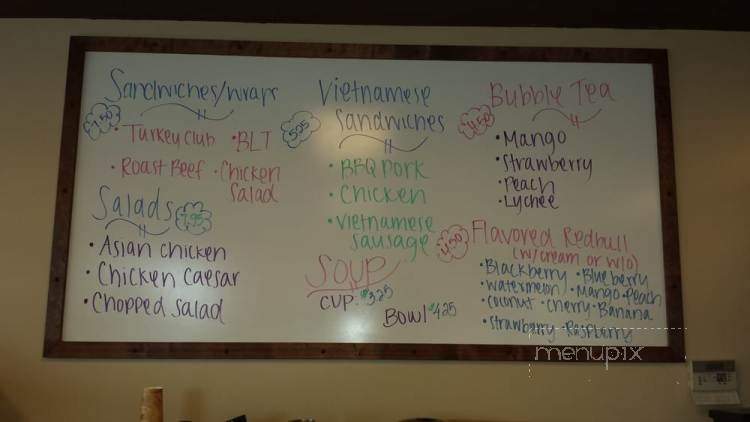 Sandwiches/wraps
7.50
• Turkey Club • BLT
• Roast Beef • Chicken Salad
Salads 7.95
• Asian chicken
• Chicken caesar
• Chopped salad
Vietnamese
Sandwiches
5.25
• BBQ Pork
• Chicken
• Vietnamese
sausage
Soup
CUP: $3.25
Bowl $4.25
Bubble Tea
4.50
• Mango
• Strawberry
• Peach
• Lychee
4.50 Flavored Redbull
(w/cream or w/o)
• Blackberry • Blueberry
• watermelon • Mango • Peach
• coconut • Cherry • Banana
• Strawberry • Raspberry
menupix